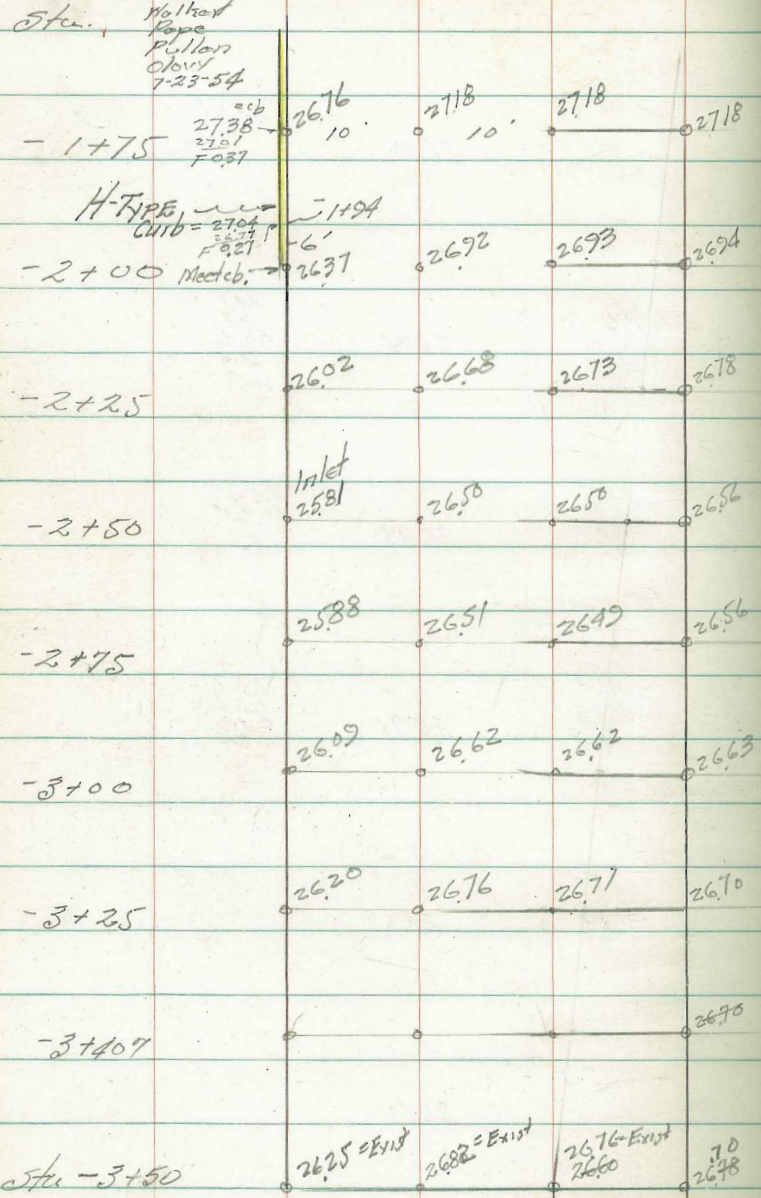 Sta.
Walker
Pope
Pullon
7-23-54
=cb
27.38
27.01
F 0.37
- 1+75 26.76 10 27.18 10' 27.18 27.18
H-TYPE - 1+94
Curb = 27.04
26.77
F 0.27 -6'
-2+00 Meet cb. 26.37 26.92 26.93 26.94
-2+25 26.02 26.68 26.73 26.78
Inlet
-2+50 25.81 26.50 26.50 26.56
-2+75 25.88 26.51 26.49 26.56
-3+00 26.09 26.62 26.62 26.63
-3+25 26.20 26.76 26.71 26.70
-3+407 26.70
26.25 =Exist 26.82 =Exist 26.76-Exist .70
Sta -3+50 26.60 26.78